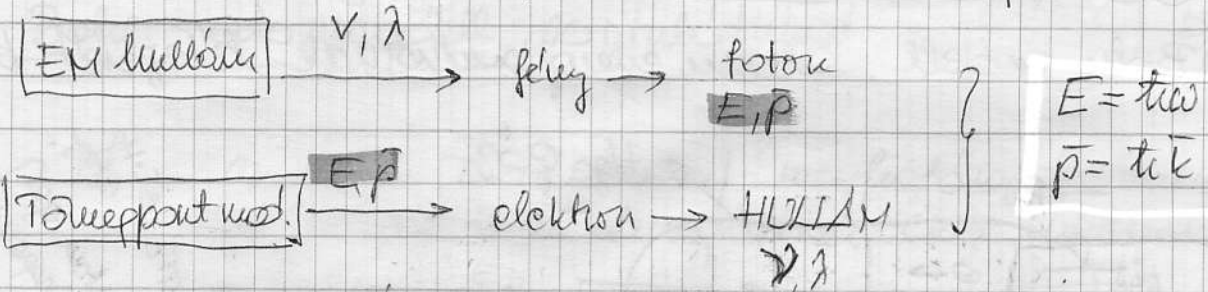 EM hullám ν, λ → fény → foton
E, p̄
E = ħω
p̄ = ħk̄
Tömegpont mod. E, p̄ → elektron → HULLÁM
ν, λ